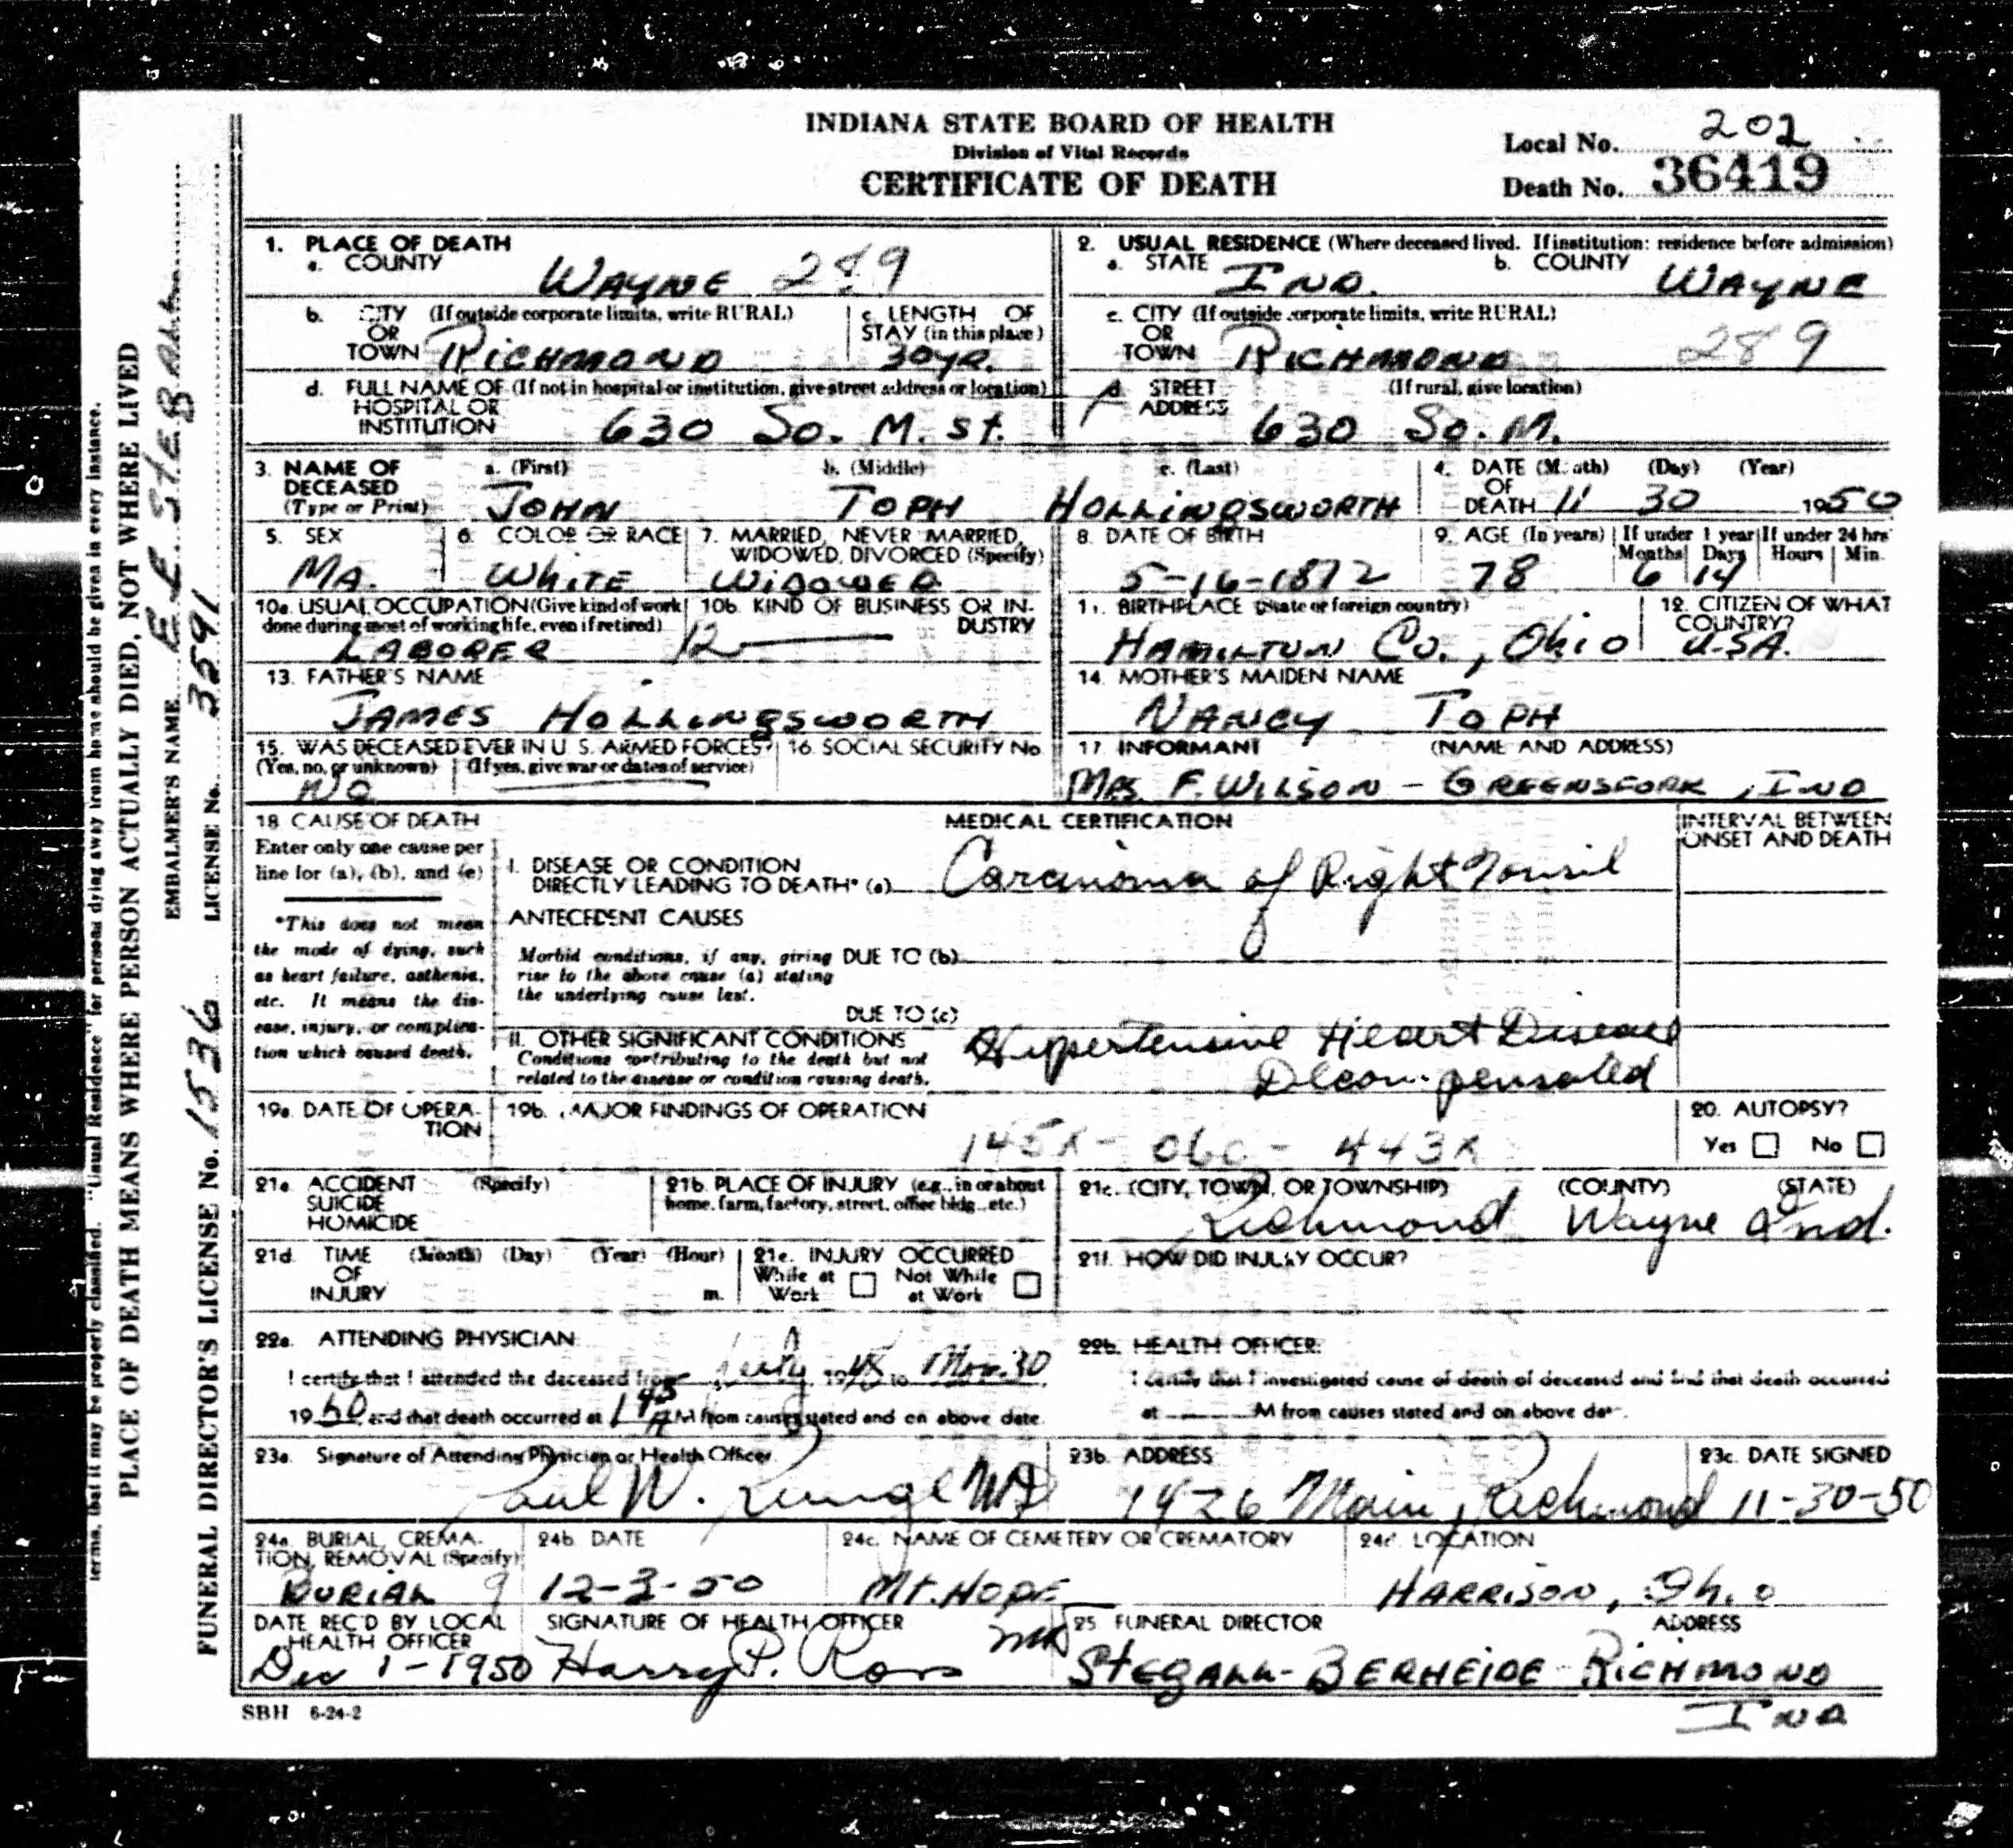 INDIANA STATE BOARD OF HEALTH
Division of Vital Records
CERTIFICATE OF DEATH
Local No. 202
Death No. 36419
1. PLACE OF DEATH
a. COUNTY WAYNE 289
2. USUAL RESIDENCE (Where deceased lived. If institution: residence before admission)
a. STATE IND. b. COUNTY WAYNE
b. CITY (If outside corporate limits, write RURAL) OR TOWN RICHMOND
c. LENGTH OF STAY (in this place) 30 yr.
c. CITY (If outside corporate limits, write RURAL) OR TOWN RICHMOND 289
d. FULL NAME OF (If not in hospital or institution, give street address or location)
HOSPITAL OR INSTITUTION 630 So. M. St.
d. STREET ADDRESS (If rural, give location) 630 So. M.
3. NAME OF DECEASED (Type or Print)
a. (First) JOHN b. (Middle) TOPH c. (Last) HOLLINGSWORTH
4. DATE OF DEATH (Month) (Day) (Year) 11 30 1950
5. SEX MA.
6. COLOR OR RACE WHITE
7. MARRIED, NEVER MARRIED, WIDOWED, DIVORCED (Specify) WIDOWED
8. DATE OF BIRTH 5-16-1872
9. AGE (In years) 78 If under 1 year Months 6 Days 14 If under 24 hrs Hours Min.
10a. USUAL OCCUPATION (Give kind of work done during most of working life, even if retired) LABORER 12
10b. KIND OF BUSINESS OR INDUSTRY
11. BIRTHPLACE (State or foreign country) HAMILTON Co., Ohio
12. CITIZEN OF WHAT COUNTRY? U.S.A.
13. FATHER'S NAME JAMES HOLLINGSWORTH
14. MOTHER'S MAIDEN NAME NANCY TOPH
15. WAS DECEASED EVER IN U. S. ARMED FORCES?
(Yes, no, or unknown) NO (If yes, give war or dates of service)
16. SOCIAL SECURITY No.
17. INFORMANT (NAME AND ADDRESS)
MRS. F. WILSON - GREENSFORK, IND
18. CAUSE OF DEATH
Enter only one cause per line for (a), (b), and (c)
*This does not mean the mode of dying, such as heart failure, asthenia, etc. It means the disease, injury, or complication which caused death.
MEDICAL CERTIFICATION
INTERVAL BETWEEN ONSET AND DEATH
I. DISEASE OR CONDITION DIRECTLY LEADING TO DEATH* (a) Carcinoma of Right Tonsil
ANTECEDENT CAUSES
Morbid conditions, if any, giving rise to the above cause (a) stating the underlying cause last.
DUE TO (b)
DUE TO (c)
II. OTHER SIGNIFICANT CONDITIONS
Conditions contributing to the death but not related to the disease or condition causing death.
Hypertensive Heart Disease
Decompensated
19a. DATE OF OPERATION
19b. MAJOR FINDINGS OF OPERATION
145X - 060 - 443X
20. AUTOPSY?
Yes No
21a. ACCIDENT SUICIDE HOMICIDE (Specify)
21b. PLACE OF INJURY (e.g., in or about home, farm, factory, street, office bldg., etc.)
21c. (CITY, TOWN, OR TOWNSHIP) (COUNTY) (STATE)
Richmond Wayne Ind.
21d. TIME OF INJURY (Month) (Day) (Year) (Hour) m.
21e. INJURY OCCURRED
While at Work Not While at Work
21f. HOW DID INJURY OCCUR?
22a. ATTENDING PHYSICIAN:
I certify that I attended the deceased from July, 1948 to Nov. 30
1950, and that death occurred at 1 45 A M from causes stated and on above date.
22b. HEALTH OFFICER:
I certify that I investigated cause of death of deceased and find that death occurred
at M from causes stated and on above date.
23a. Signature of Attending Physician or Health Officer
Paul W. MD
23b. ADDRESS 1426 Main, Richmond
23c. DATE SIGNED 11-30-50
24a. BURIAL, CREMATION, REMOVAL (Specify) BURIAL 9
24b. DATE 12-3-50
24c. NAME OF CEMETERY OR CREMATORY MT. HOPE
24d. LOCATION HARRISON, Ohio
DATE REC'D BY LOCAL HEALTH OFFICER Dec 1-1950
SIGNATURE OF HEALTH OFFICER Harry P. Ross MD
25 FUNERAL DIRECTOR ADDRESS
STEGALL-BERHEIDE RICHMOND
IND
SBH 6-24-2
terms, that it may be properly classified. "Usual Residence" for persons dying away from home should be given in every instance.
PLACE OF DEATH MEANS WHERE PERSON ACTUALLY DIED, NOT WHERE LIVED
EMBALMER'S NAME E. E.
FUNERAL DIRECTOR'S LICENSE No. 1536 LICENSE No. 3591